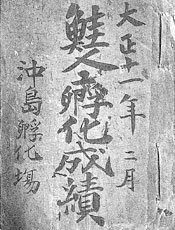 大正十一年二月
鮭人孵化成績
沖島孵化場